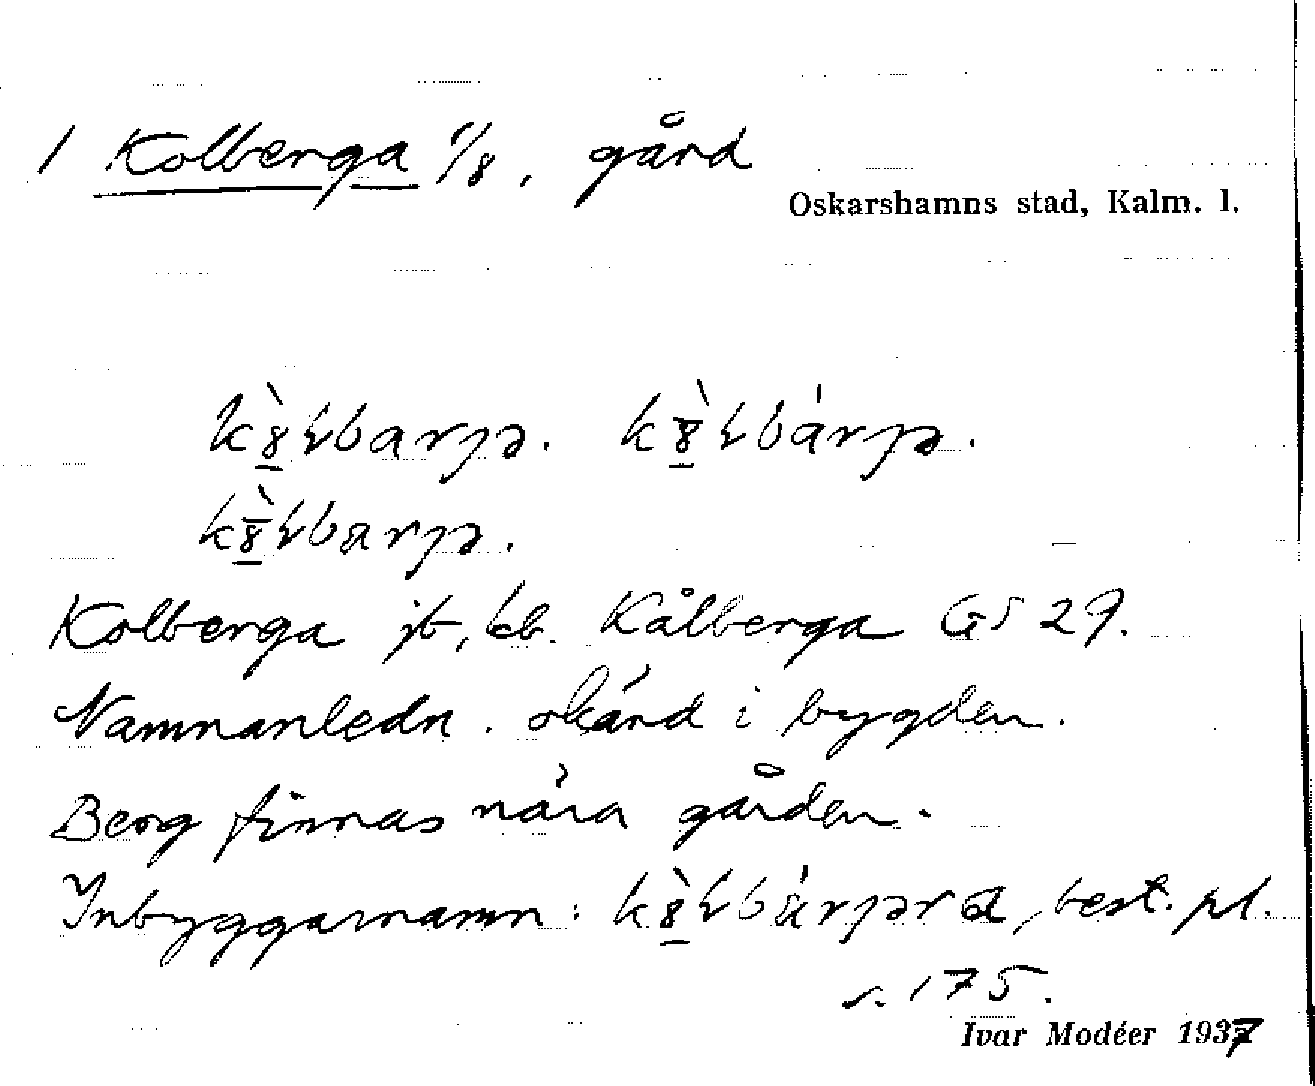 1 Kolberga 1/8, gård
Oskarshamns stad, Kalm. l.
Kolberga jb, kb. Kålberga GS 29.
Namnanledn. okänd i bygden.
Berg finnas nära gården.
Inbyggarnamn: best. pl.
s. 175.
Ivar Modéer 1937